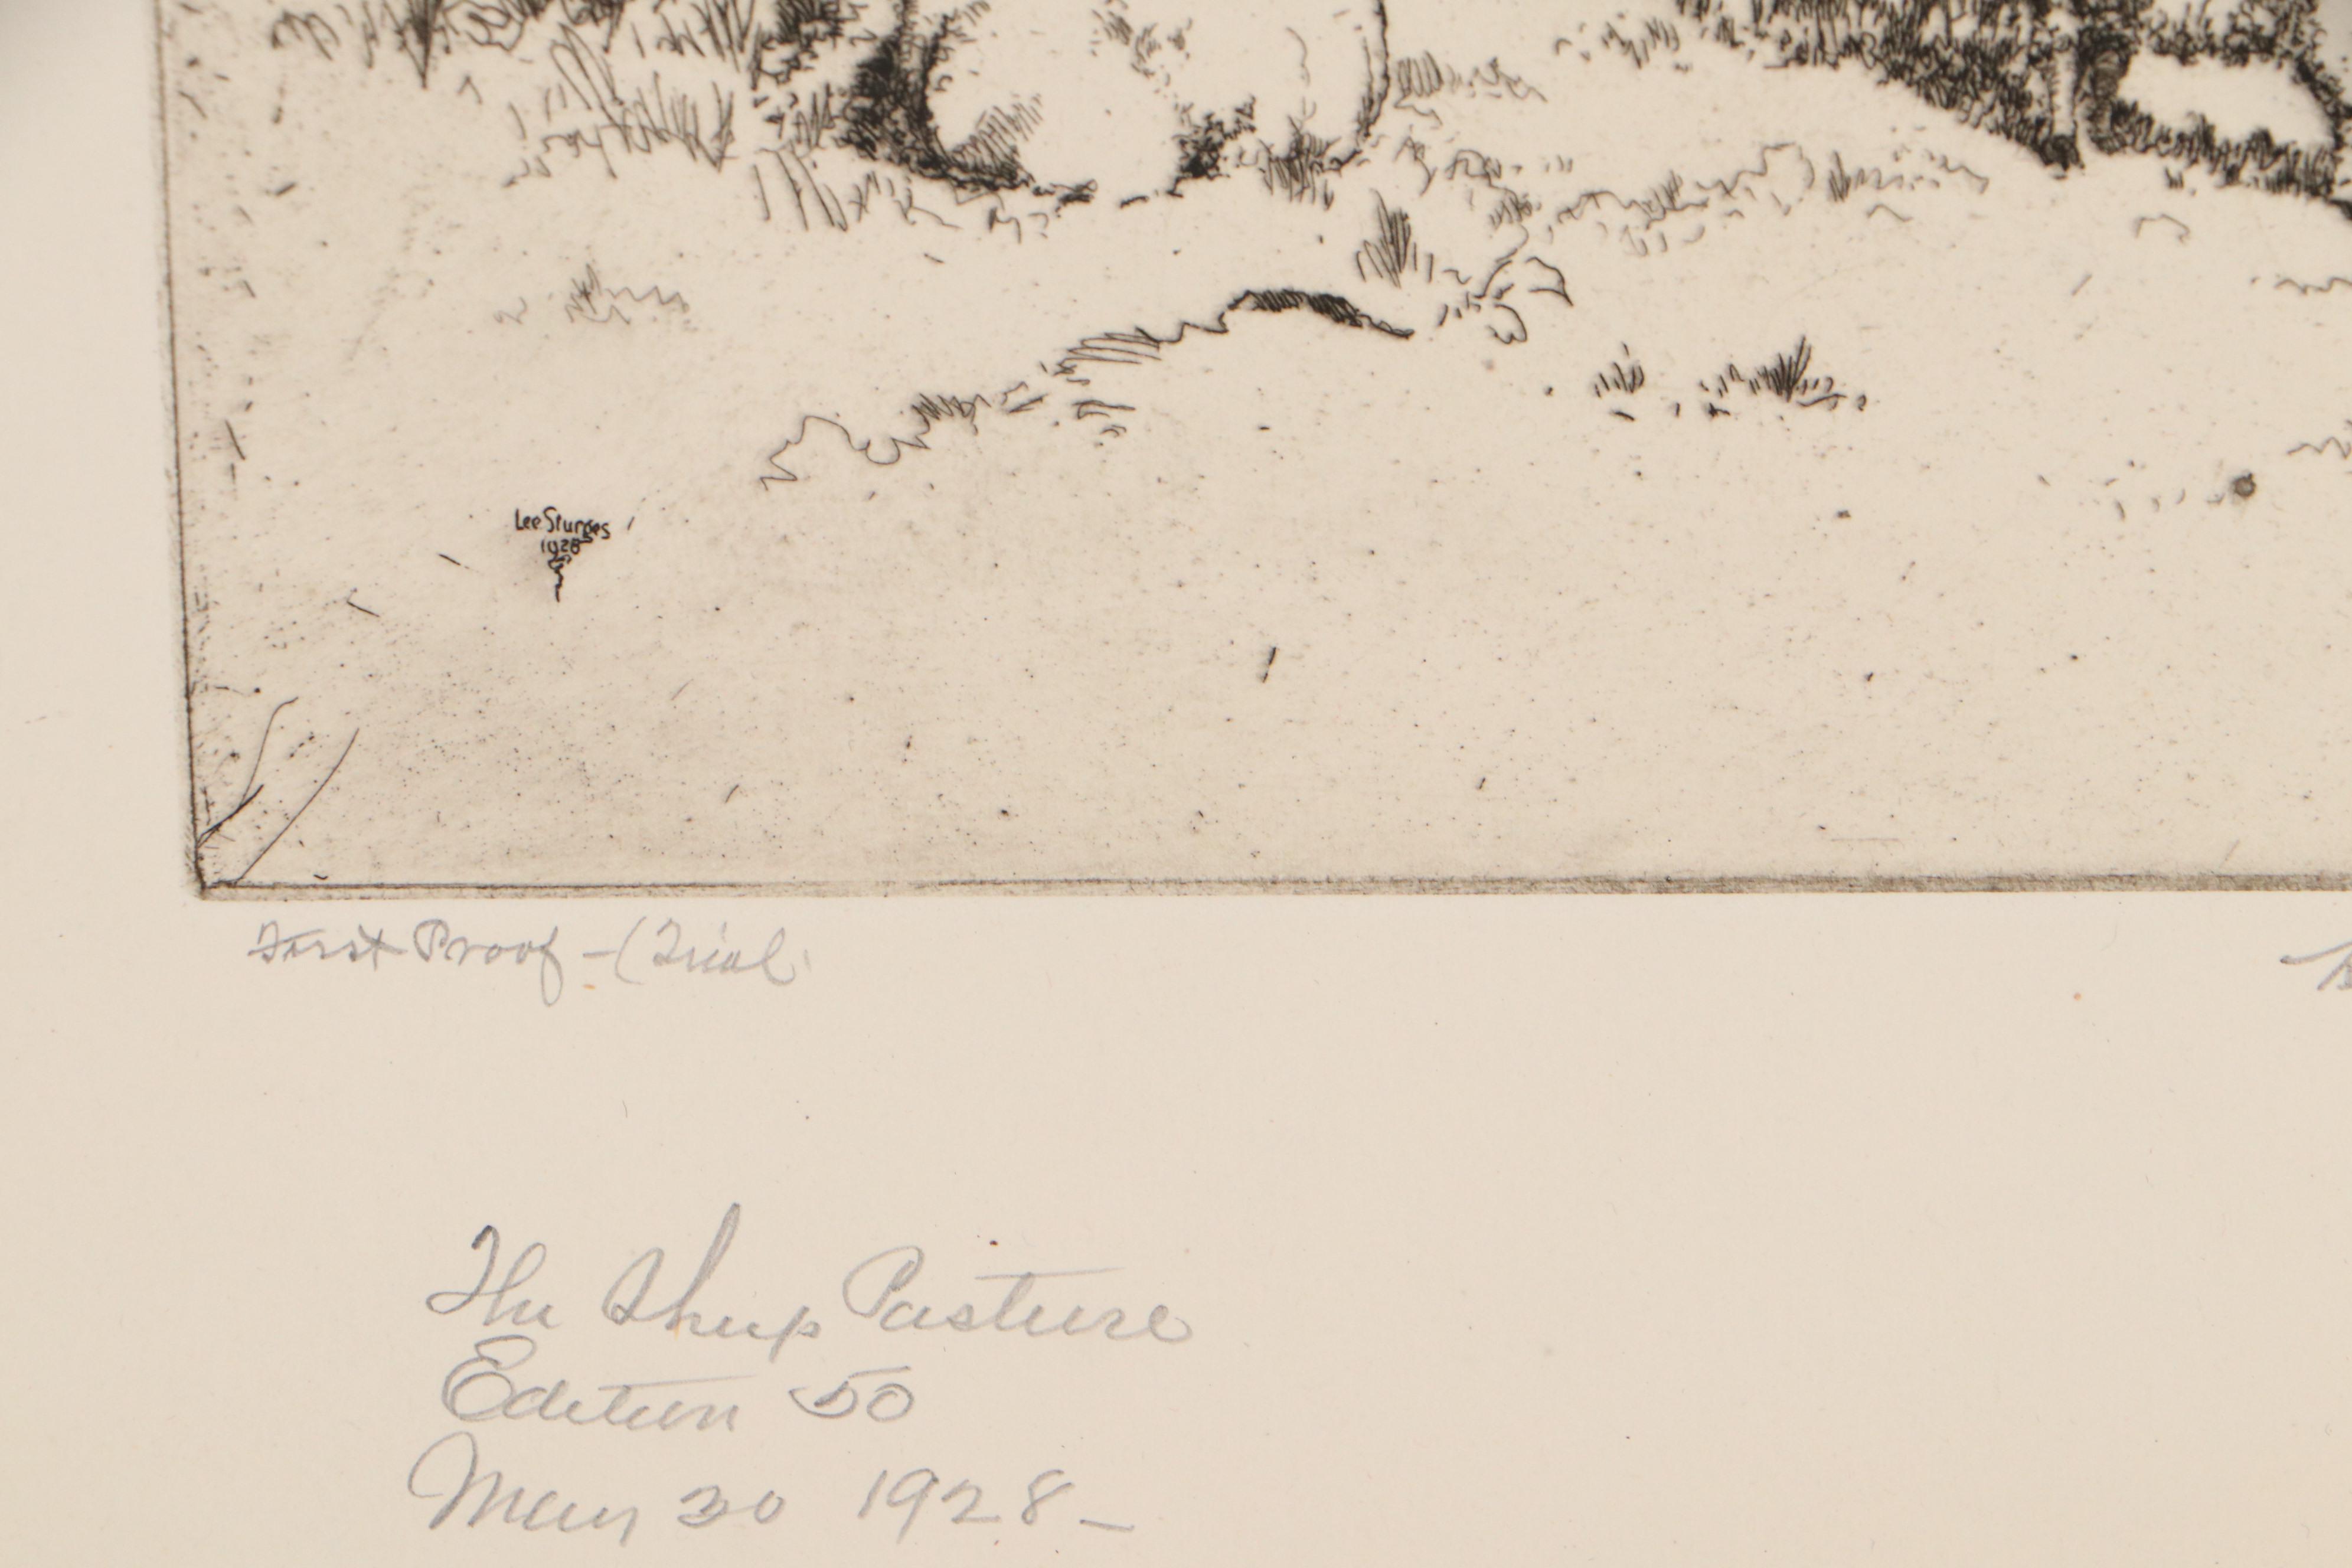 Lee Sturges
1928
First Proof - (Trial
The Sheep Pasture
Edition 50
May 30 1928 -